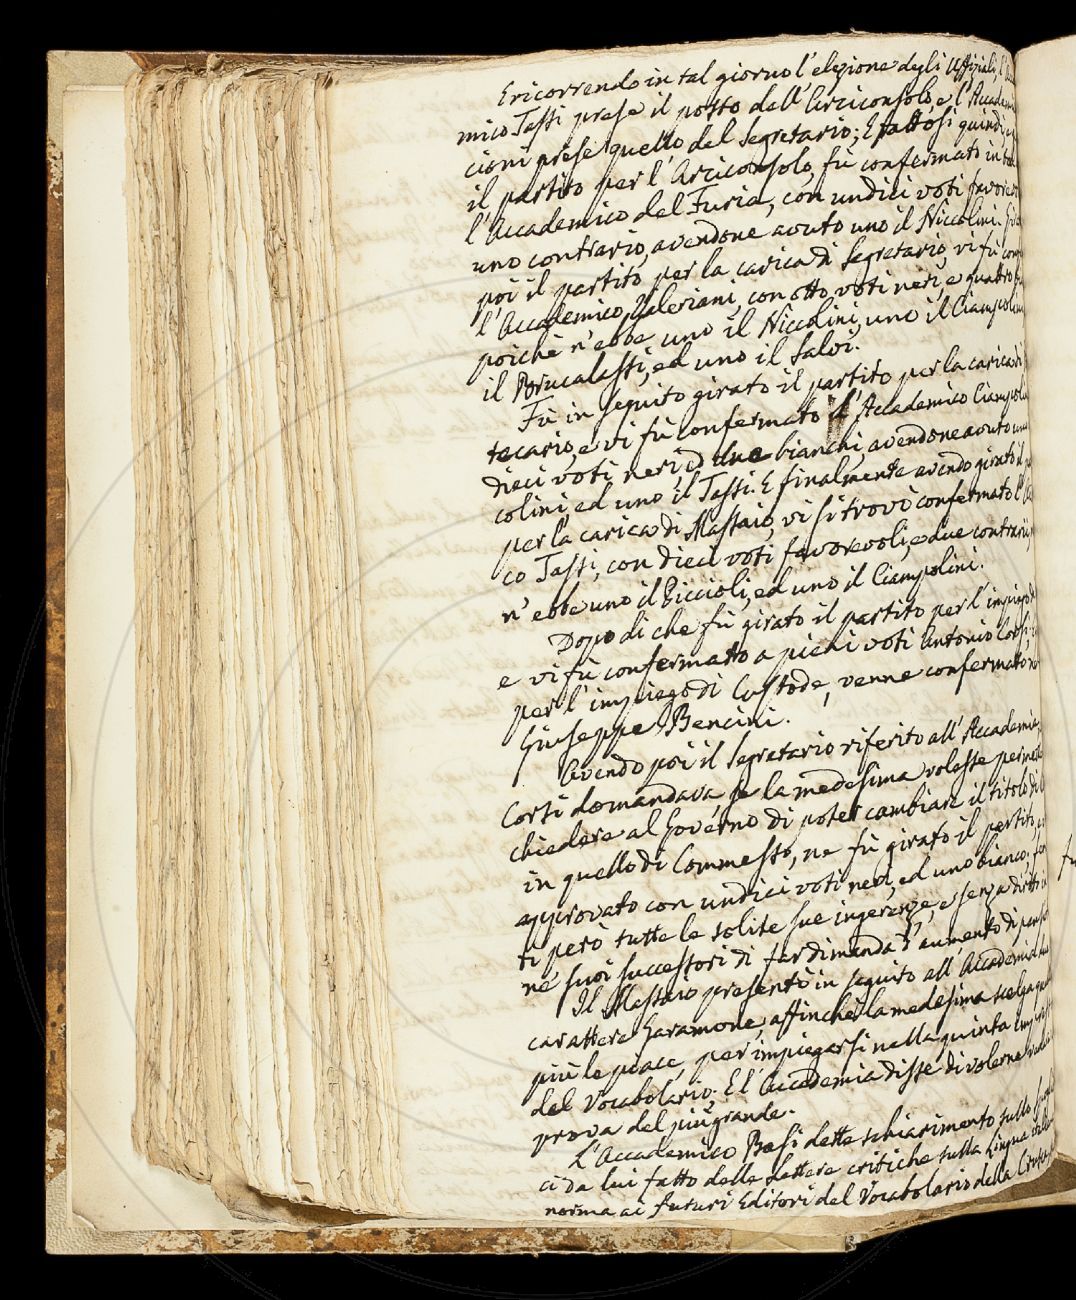 E ricorrendo in tal giorno l'elezione degli Uffiziali, l'
mico Tassi prese il posto dell'Arciconsolo, e l'Accade
cioni prese quello del Segretario; E fattosi quindi
il partito per l'Arciconsolo, fù confermato in
l'Accademico del Furia, con undici voti favore
uno contrario, avendone avuto uno il Niccolini.
poi il partito per la carica di Segretario, vi fù con
l'Accademico Valeriani, con otto voti neri, e quattro
poiché n'ebbe uno il Niccolini, uno il Ciampolini
il Borucalassi, ed uno il Salvi.
Fù in seguito girato il partito per la carica di
tecario, e vi fù confermato l'Accademico Ciampol
dieci voti neri e due bianchi, avendone avuto uno
colini ed uno il Tassi. E finalmente avendo girato il
per la carica di Massaio, vi si trovò confermato l'
co Tassi, con dieci voti favorevoli, e due contrarj,
n'ebbe uno il Riccioli, ed uno il Ciampolini.
Dopo di che fù girato il partito per l'impiego
e vi fù confermato a pieni voti Antonio Corsi,
per l'impiego di Custode, venne confermato
Giuseppe Bencini.
Avendo poi il Segretario riferito all'Accademia,
Corsi domandava, se la medesima volesse perme
chiedere al Governo di poter cambiare il titolo di
in quello di Commesso, ne fù girato il partito,
approvato con undici voti neri, ed uno bianco,
ti però tutte le solite sue ingerenze, e senza diritto
né suoi successori di far dimanda d'aumento di
Il Massaio presentò in seguito all'Accademia
carattere Garamone, affinchè la medesima scelga
più le piace, per impiegarsi nella quinta
del Vocabolario. E l'Accademia disse di volerne
prova del più grande.
L'Accademico Basi dette schiarimento sullo
ci da lui fatto delle Lettere critiche sulla Lingua
norma ai futuri Editori del Vocabolario della Crusca